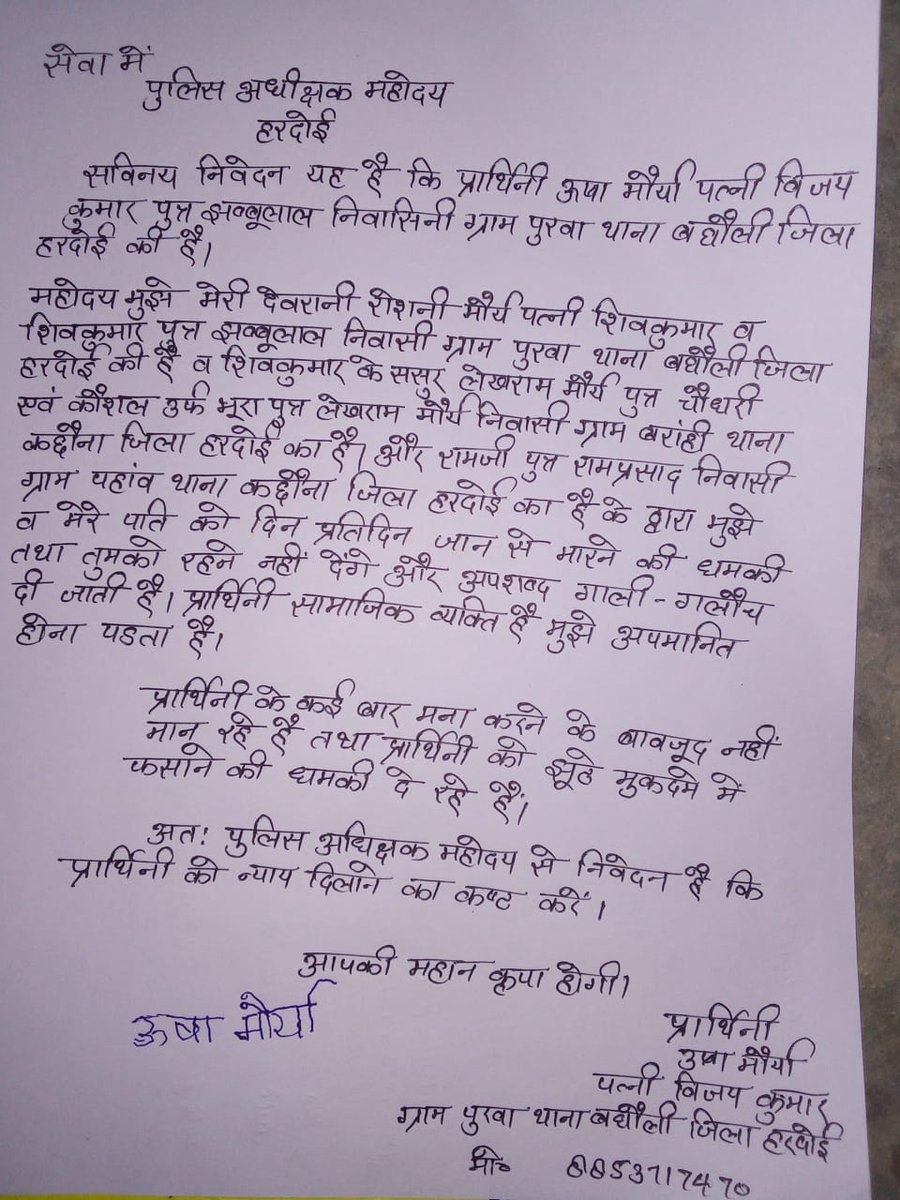 सेवा में
पुलिस अधीक्षक महोदय
हरदोई
सविनय निवेदन यह है कि प्रार्थिनी ऊषा मौर्या पत्नी विजय
कुमार पुत्र झब्बूलाल निवासिनी ग्राम पुरवा थाना बघौली जिला
हरदोई की है।
महोदय मुझे मेरी देवरानी रोशनी मौर्य पत्नी शिवकुमार व
शिवकुमार पुत्र झब्बूलाल निवासी ग्राम पुरवा थाना बघौली जिला
हरदोई की है व शिवकुमार के ससुर लेखराम मौर्य पुत्र चौधरी
एवं कौशल उर्फ भूरा पुत्र लेखराम मौर्य निवासी ग्राम बरांही थाना
कछौना जिला हरदोई का है। और रामजी पुत्र रामप्रसाद निवासी
ग्राम पहांव थाना कछौना जिला हरदोई का है के द्वारा मुझे
व मेरे पति को दिन प्रतिदिन जान से मारने की धमकी
तथा तुमको रहने नहीं देंगे और अपशब्द गाली-गलौच
दी जाती है। प्रार्थिनी सामाजिक व्यक्ति है मुझे अपमानित
होना पडता है।
प्रार्थिनी के कई बार मना करने के बावजूद नहीं
मान रहे है तथा प्रार्थिनी को झूठे मुकदमे में
फसाने की धमकी दे रहे हैं।
अतः पुलिस अधिक्षक महोदय से निवेदन है कि
प्रार्थिनी को न्याय दिलाने का कष्ट करें।
आपकी महान कृपा होगी।
ऊषा मौर्या
प्रार्थिनी
उषा मौर्या
पत्नी विजय कुमार
ग्राम पुरवा थाना बघौली जिला हरदोई
मो० 8853717470